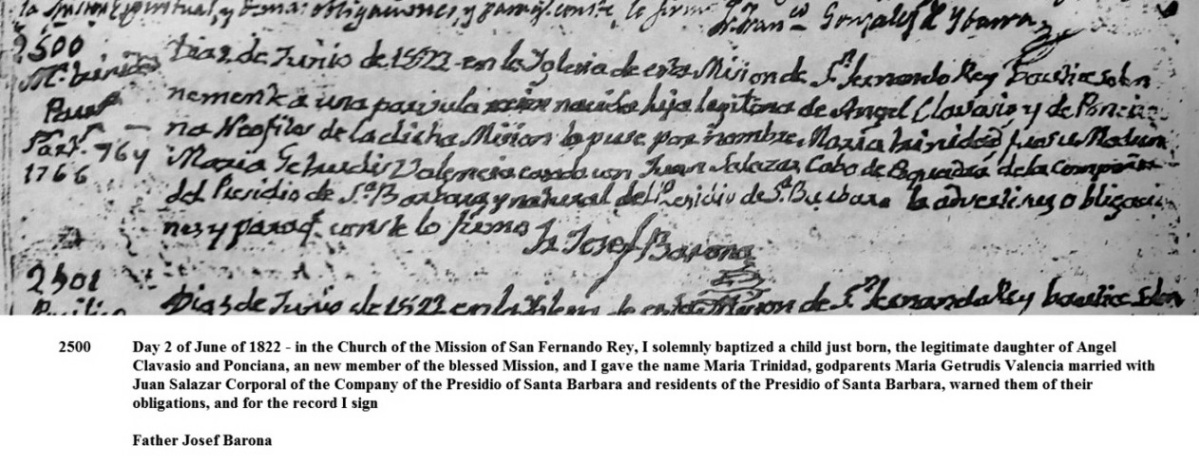 la y demas obligaciones, y para q. conste, lo firme Fr. Fran.co Gonzales de Ybarra
2500
M.a Trinidad
Parv.
Part. 764
1766
Dia 2 de Junio de 1822 - en la Yglesia de esta Mision de S.n Fernando Rey bautice solen
nemente a una parvula recien nacida hija legitima de Angel Clavasio y de Poncia
na Neofitos de la dicha Mision la puse por nombre, Maria trinidad, fue su Madrina
Maria Getrudis Valencia casada con Juan Salazar Cabo de Esquadra de la compañia
del Presidio de S.ta Barbara y natural del Presidio de S.ta Barbara la adverti sus obligacio
nes y para q. conste lo firme
Fr. Josef Barona
2501
Dia 3 de Junio de 1822 en la Yglesia de esta Mision de S.n Fernando Rey bautice solen
2500 Day 2 of June of 1822 - in the Church of the Mission of San Fernando Rey, I solemnly baptized a child just born, the legitimate daughter of Angel
Clavasio and Ponciana, an new member of the blessed Mission, and I gave the name Maria Trinidad, godparents Maria Getrudis Valencia married with
Juan Salazar Corporal of the Company of the Presidio of Santa Barbara and residents of the Presidio of Santa Barbara, warned them of their
obligations, and for the record I sign
Father Josef Barona